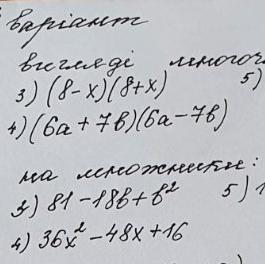 варіант
вигляді многоч
3) (8-x)(8+x) 5)
4) (6a+7в)(6a-7в)
на множники:
3) 81-18в+в² 5) 1
4) 36x²-48x+16